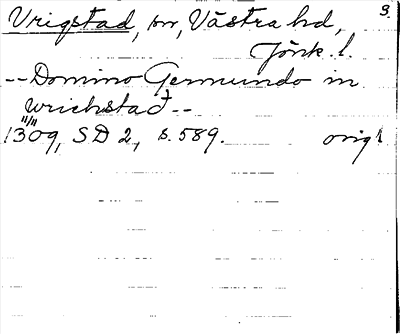 3.
Vrigstad, sn, Västra hd,
Jönk. l.
-- Domino Germundo in
wrichstad --
11/11
1309, SD 2, s. 589. orig.